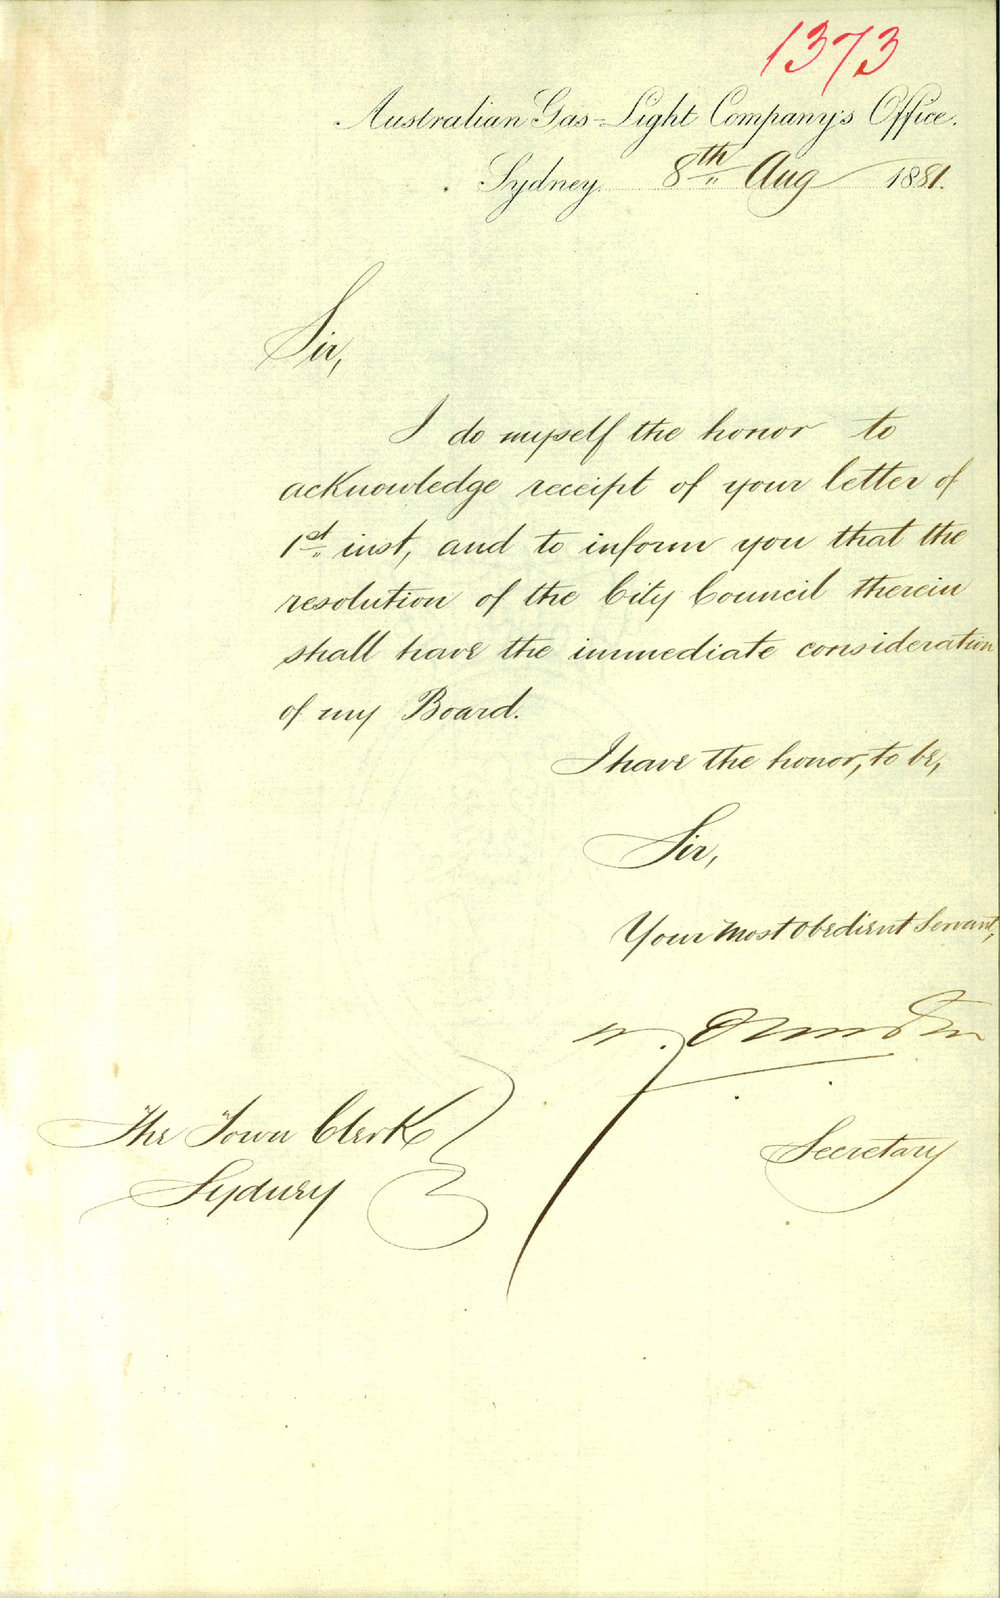 1373
Australian Gas-Light Company's Office.
Sydney 8th Aug 1881.
Sir,
I do myself the honor to
acknowledge receipt of your letter of
1st inst, and to inform you that the
resolution of the City Council therein
shall have the immediate consideration
of my Board.
I have the honor, to be,
Sir,
Your most obedient Servant,
Secretary
The Town Clerk
Sydney